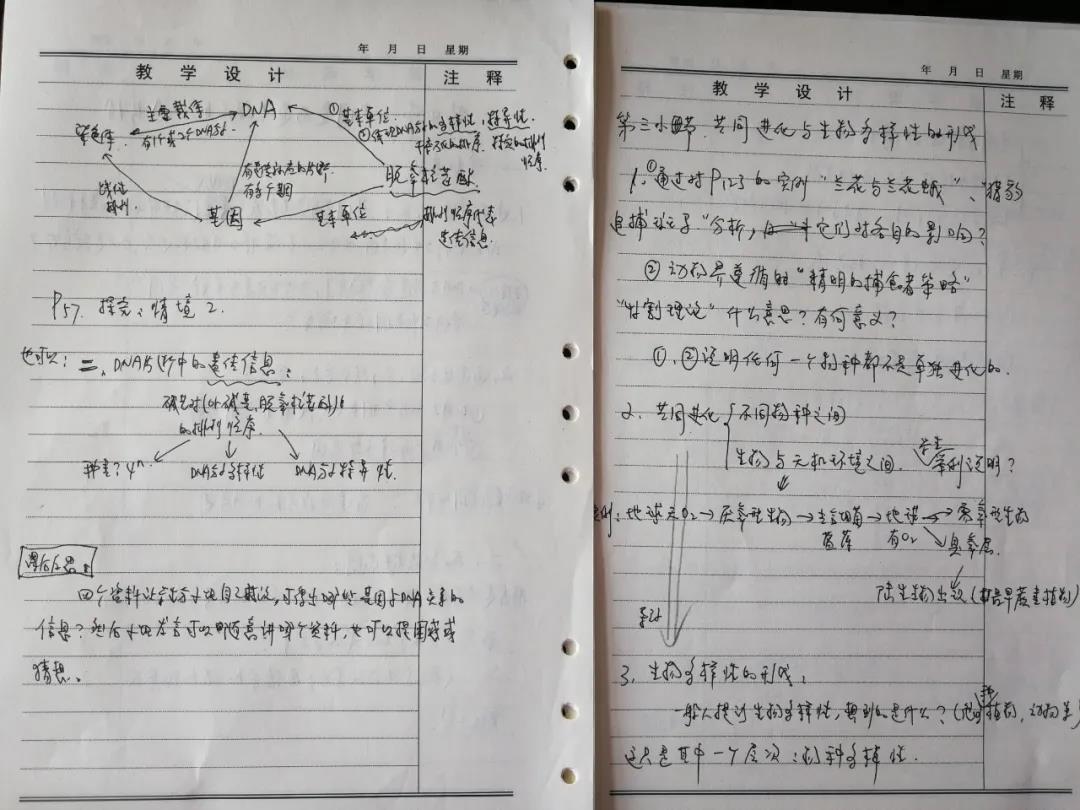 年 月 日 星期
教 学 设 计 注 释
主要载体 DNA ①基本单位
染色体 有1个或2个DNA分子 ②体现DNA分子的多样性、特异性
千变万化的排列顺序 特定的排列顺序
有遗传效应的片段
有多个基因
脱氧核苷酸
线性排列
基因 基本单位 排列顺序代表遗传信息
P57. 探究、情境2.
也可以: 二、DNA片断中的遗传信息:
碱基对(
的排列顺序.
种类? 4ⁿ. DNA分子多样性 DNA分子特异性.
课后反思:
四个资料让学生小组自己概括,可得出哪些基因与DNA关系的
信息?然后小组发言可以随意讲哪个资料,也可以提困惑或
猜想.
年 月 日 星期
教 学 设 计 注 释
第三小节. 共同进化与生物多样性的形成
1. ①通过对P123的实例“兰花与兰花蛾”、“猎豹
追捕斑羚子”分析, 它们对各自的影响?
②动物界遵循的“精明的捕食者策略”
“收割理论”什么意思?有何意义?
①、②证明任何一个物种都不是单独进化的.
2. 共同进化 不同物种之间
生物与无机环境之间. 学生举例说明?
举例: 地球无O2→厌氧型生物→ →地球有O2→需氧型生物
蓝藻 臭氧层.
陆生生物出现(
3. 生物多样性的形成:
一般人提到生物多样性,想到的是什么? (
这只是其中一个层次:物种多样性.